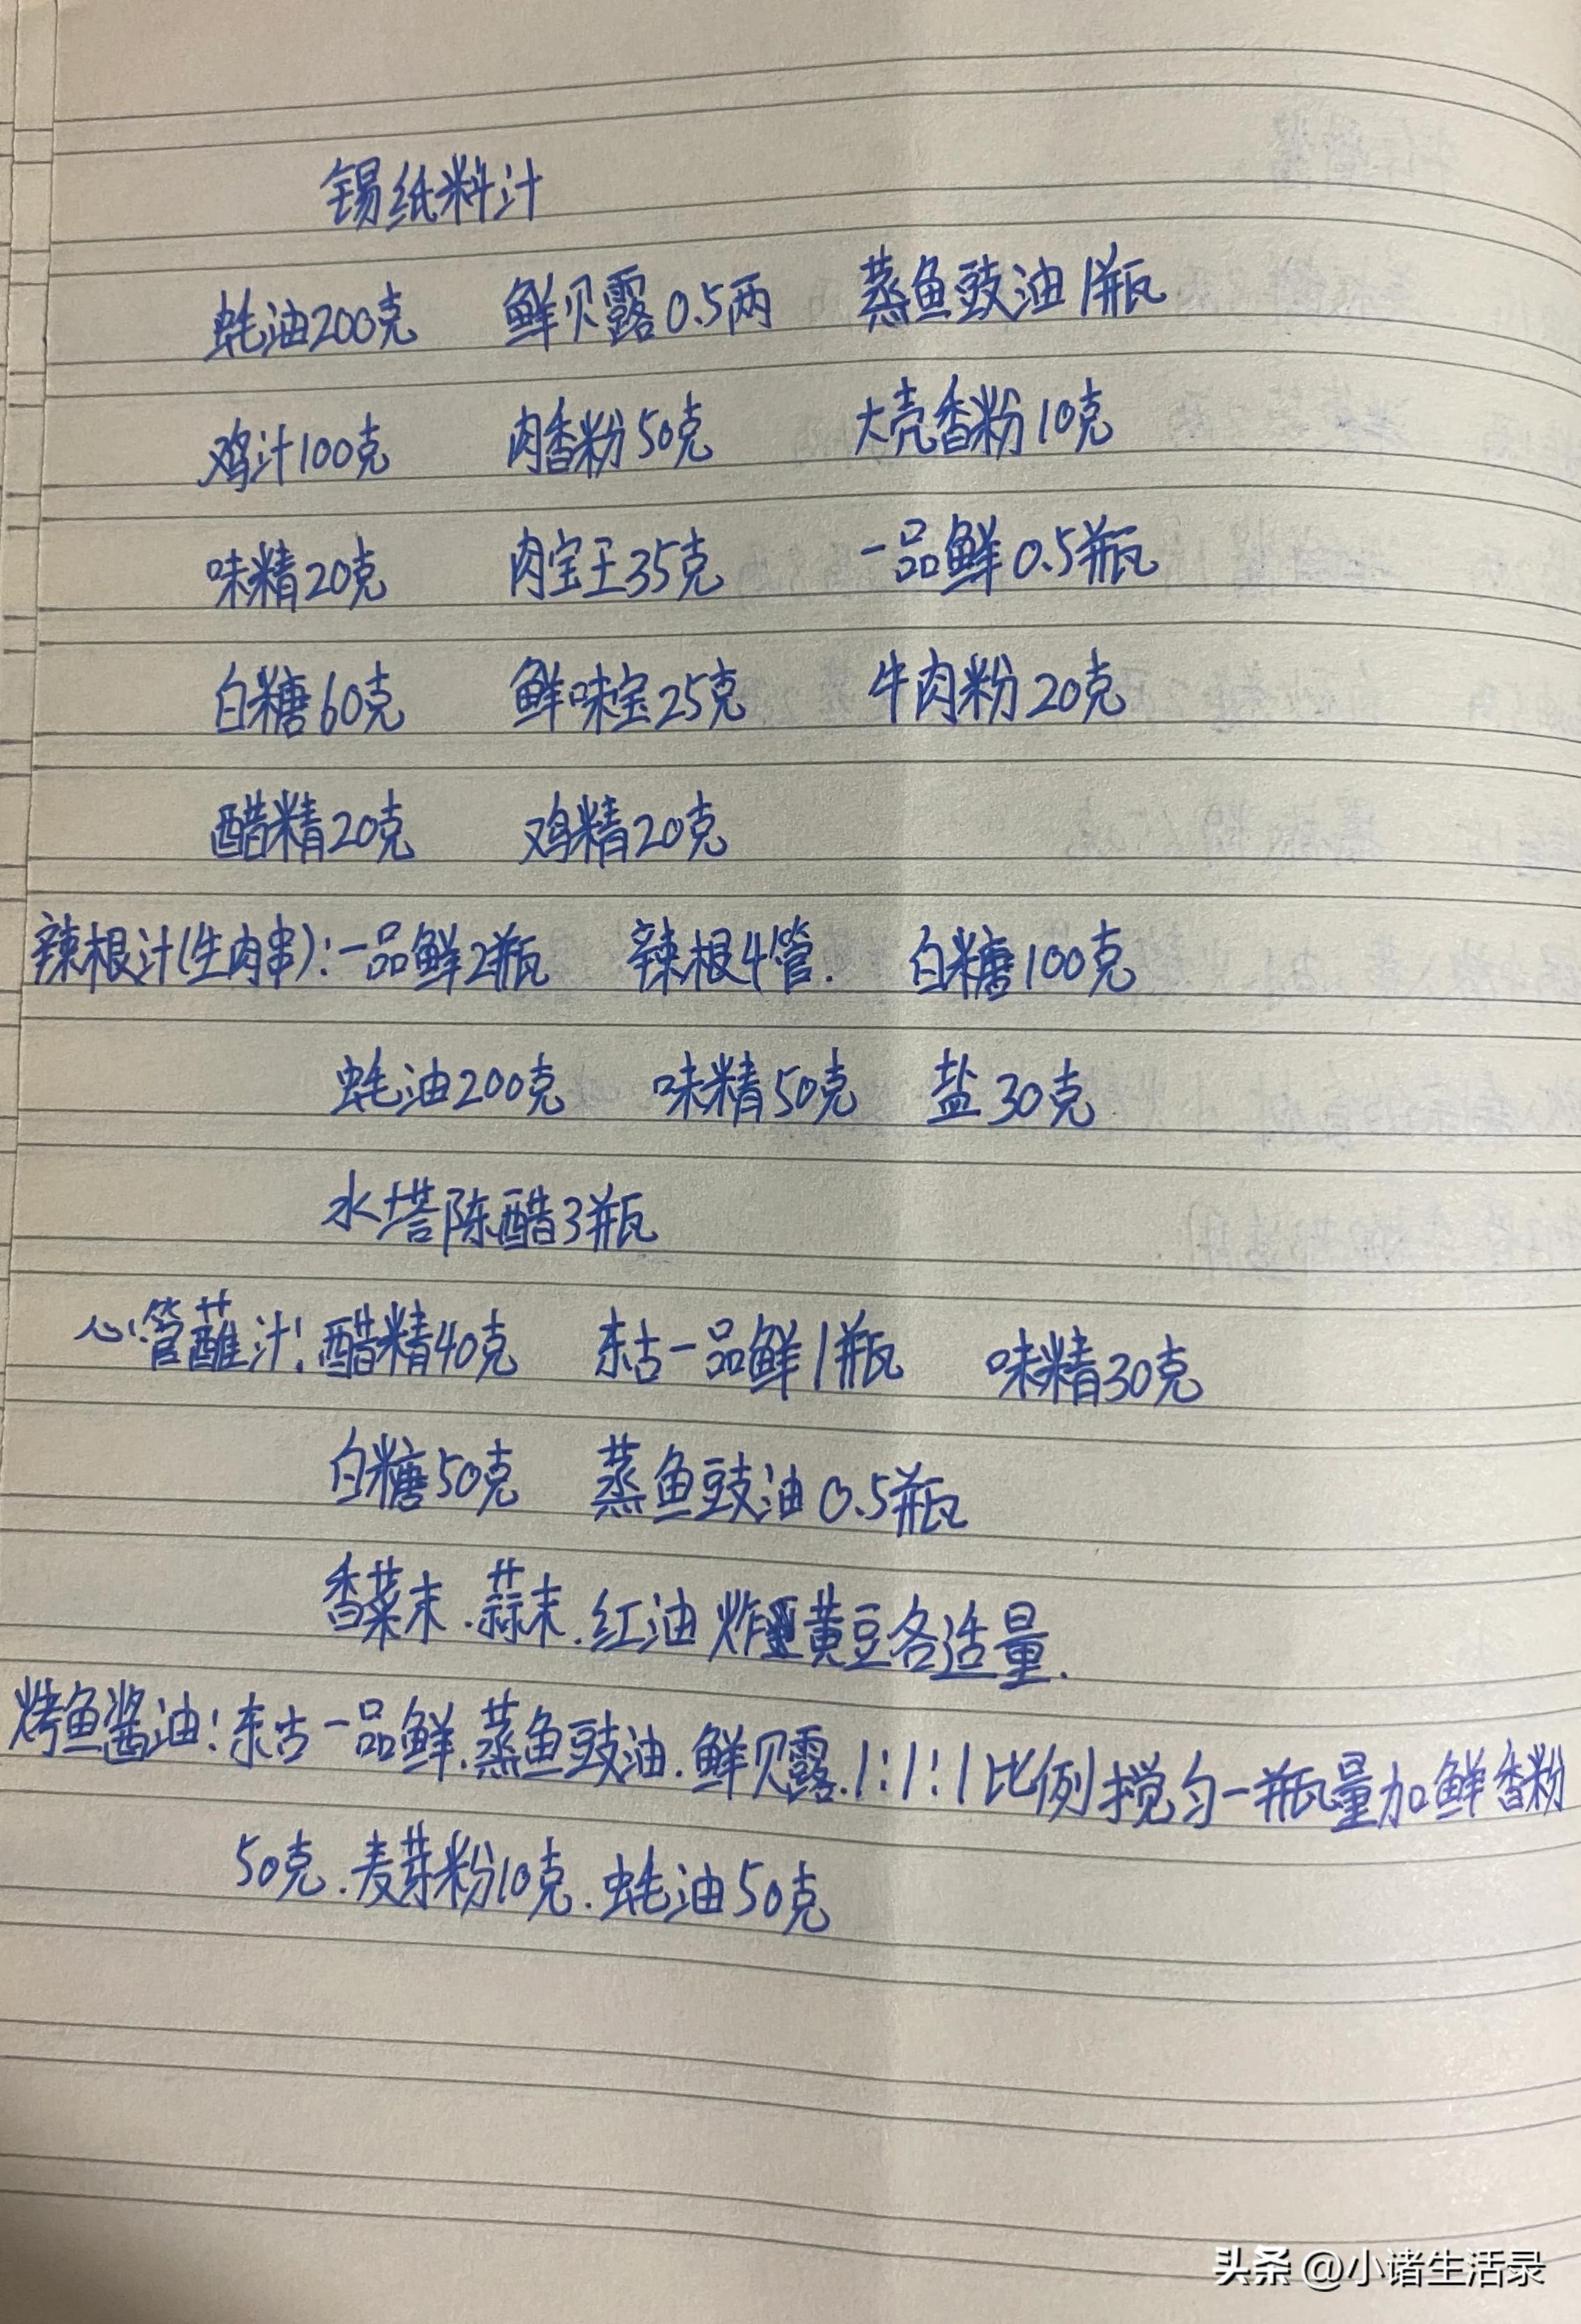 锡纸料汁
蚝油200克 鲜贝露0.5两 蒸鱼豉油1瓶
鸡汁100克 肉香粉50克 大壳香粉10克
味精20克 肉宝王35克 一品鲜0.5瓶
白糖60克 鲜味宝25克 牛肉粉20克
醋精20克 鸡精20克
辣根汁(生肉串):一品鲜2瓶 辣根4管. 白糖100克
蚝油200克 味精50克 盐30克
水塔陈醋3瓶
心管蘸汁:醋精40克 东古一品鲜1瓶 味精30克
白糖50克 蒸鱼豉油0.5瓶
香菜末.蒜末.红油 炸黄豆各适量.
烤鱼酱油:东古一品鲜.蒸鱼豉油.鲜贝露.1:1:1比例搅匀一瓶量加鲜香粉
50克.麦芽粉10克.蚝油50克
头条@小诸生活录